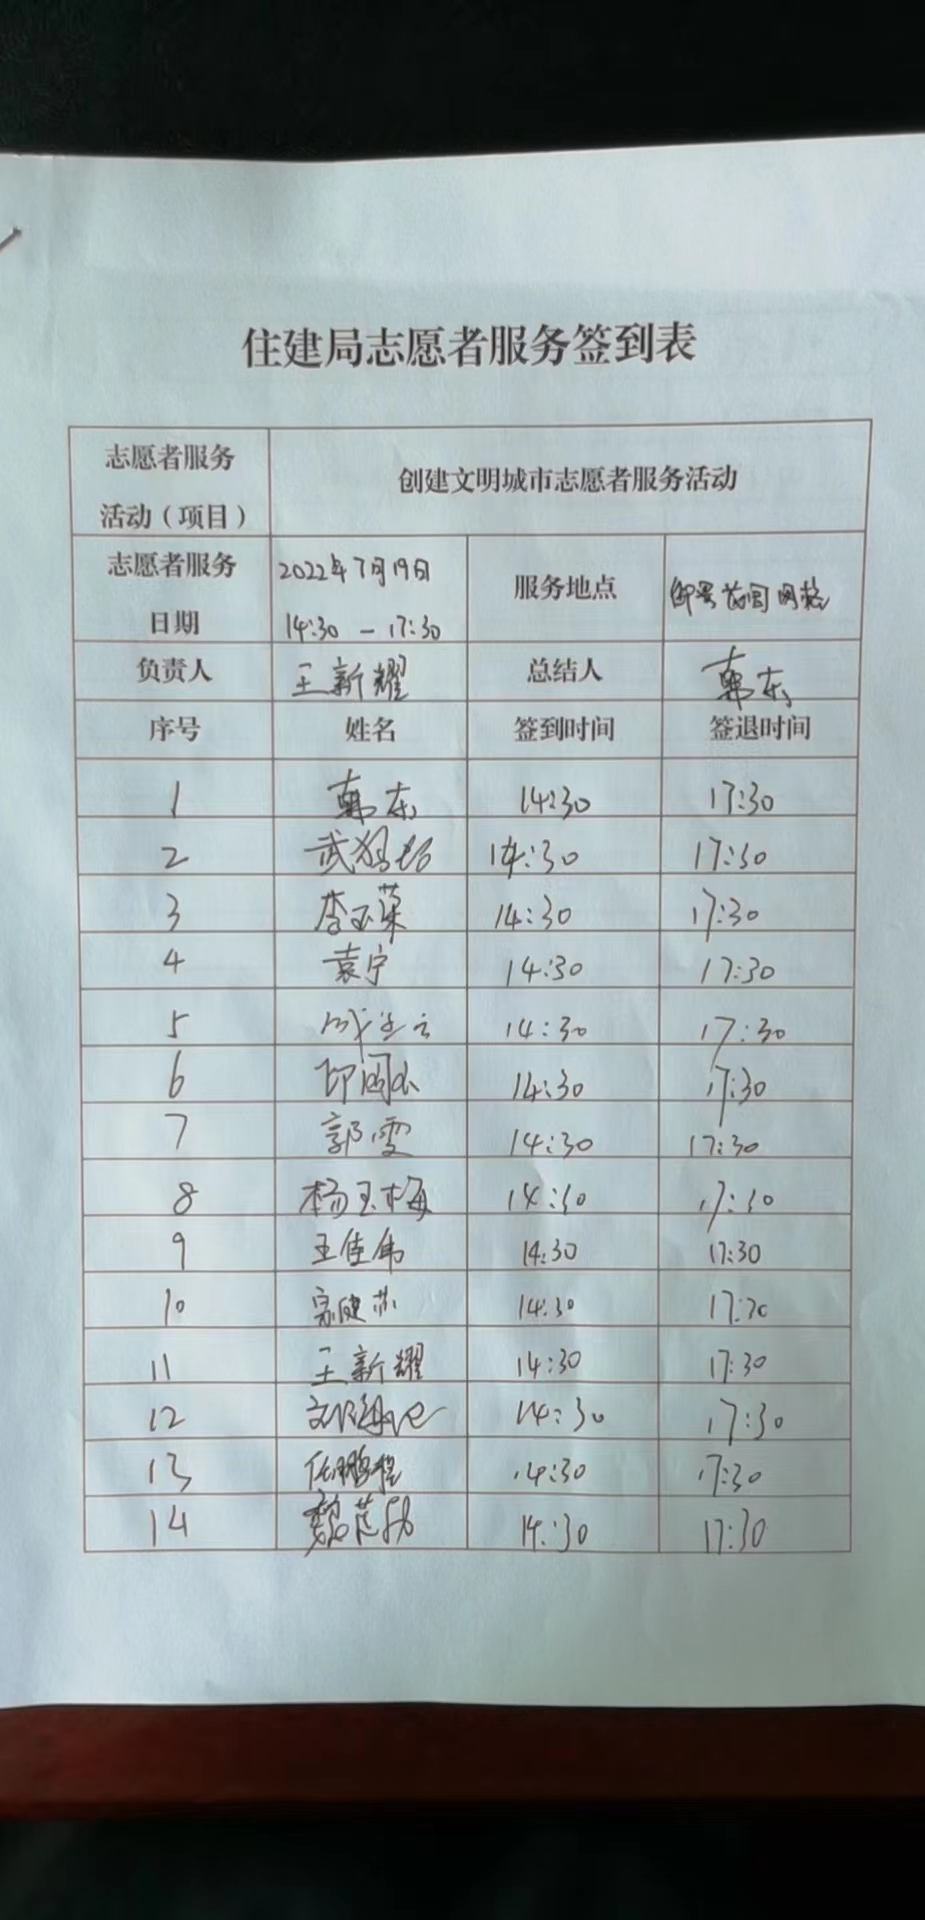 住建局志愿者服务签到表
志愿者服务
活动（项目）
创建文明城市志愿者服务活动
志愿者服务
日期
2022年7月19日
14:30 — 17:30
服务地点
御景花园网格
负责人 王新耀 总结人 韩东
序号 姓名 签到时间 签退时间
1 韩东 14:30 17:30
2 武 14:30 17:30
3 李玉荣 14:30 17:30
4 袁宁 14:30 17:30
5 14:30 17:30
6 14:30 17:30
7 郭雯 14:30 17:30
8 杨玉梅 14:30 17:30
9 王佳伟 14:30 17:30
10 14:30 17:30
11 王新耀 14:30 17:30
12 14:30 17:30
13 任鹏程 14:30 17:30
14 魏 14:30 17:30